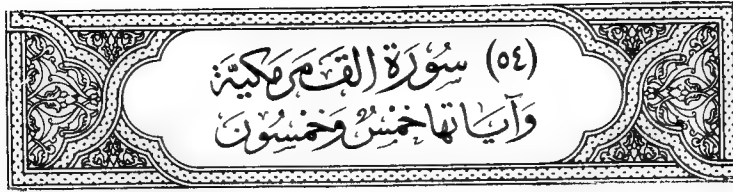 (٥٤) سُوْرَةُ القَمَرِ مَكيَّة
وَآيَاتُهَا خَمْسٌ وَخَمْسُونَ